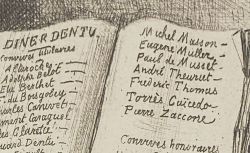 DINER DENTU
Convives titulaires
A. Laroche
Adolphe Belot
Elie Berthet
F. du Boisgobey
Charles Canivet
Clément Caraguel
Jules Claretie
Édouard Dentu
Michel Masson
Eugene Muller
Paul de Musset
André Theuriet
Frederic Thomas
Torrès Caïcedo
Pierre Zaccone
Convives honoraires